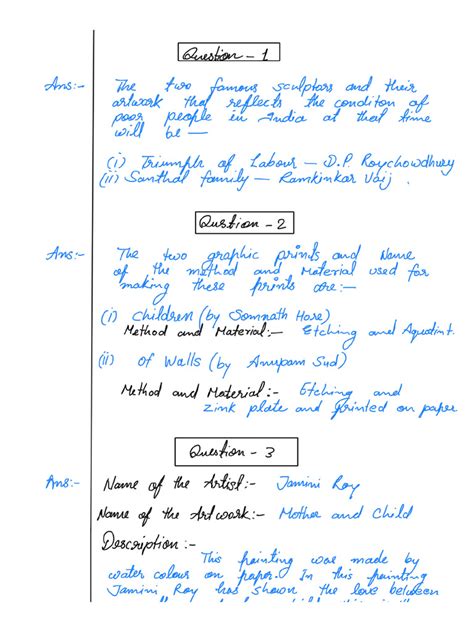 Question - 1
Ans:- The two famous sculptors and their
artwork that reflects the conditon of
poor people in India at that time
will be —
(i) Triumph of Labour — D.P. Roychowdhury
(ii) Santhal family — Ramkinkar Vaij.
Question - 2
Ans:- The two graphic prints and Name
of the method and Material used for
making these prints are:—
(i) Children (by Somnath Hore)
Method and Material:— Etching and Aquatint.
(ii) Of Walls (by Anupam Sud)
Method and Material:- Etching and
zink plate and printed on paper
Question - 3
Ans:- Name of the Artist:- Jamini Roy
Name of the Artwork:- Mother and Child
Description:-
This painting was made by
water colour on paper. In this painting
Jamini Roy has shown the love between